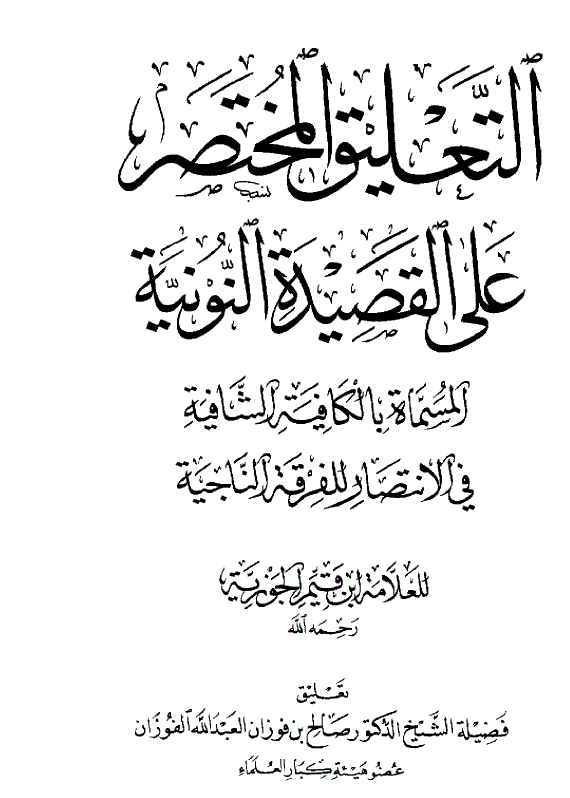 التَّعْلِيقُ المُخْتَصَر
عَلَى القَصِيدَةِ النُّونِيَّة
المُسَمَّاة بِالكَافِيَةِ الشَّافِيَةِ
فِي الانتصَارِ للفِرْقَةِ النَّاجِيَة
للعَلَّامَة ابْنِ قَيِّم الجَوْزِيَّة
رَحِمَه الله
تَعْليق
فَضِيلة الشَّيْخ الدّكتور صَالِح بن فوزان العَبدالله الفَوْزَان
عُضْو هَيْئة كِبَار العُلَمَاء